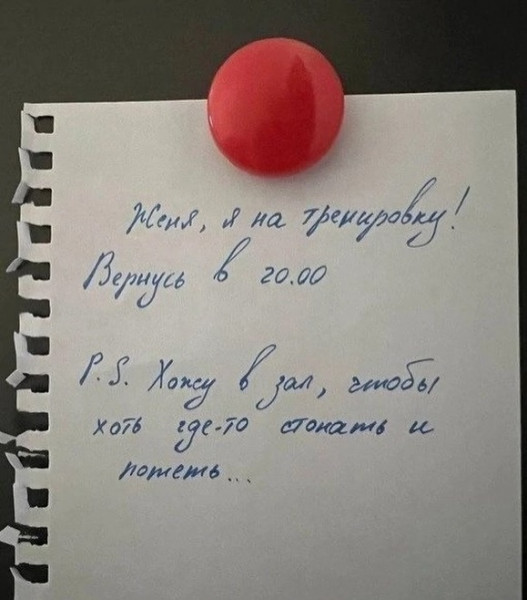 Женя, я на тренировку!
Вернусь в 20.00
P.S. Хожу в зал, чтобы
хоть где-то стонать и
потеть...